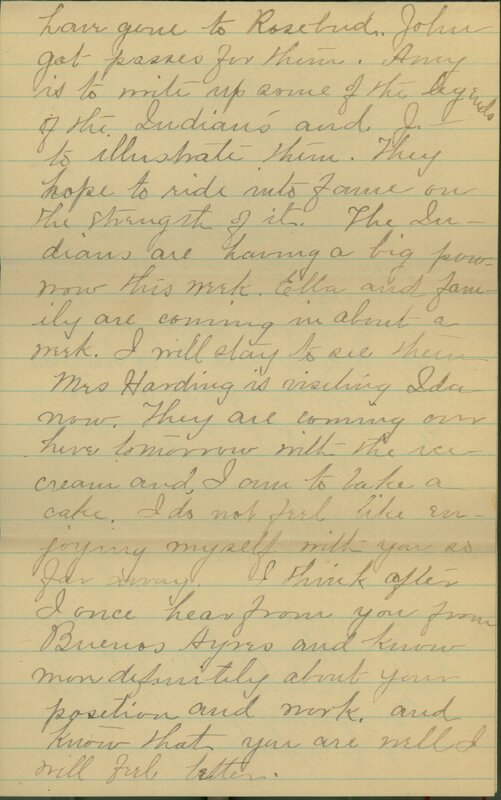 have gone to Rosebud. John
got passes for them. Amy
is to write up some of the legends
of the Indians and J. -
to illustrate them. They
hope to ride into fame on
the strength of it. The In-
dians are having a big pow-
wow this week. Ella and fam-
ily are coming in about a
week. I will stay to see them.
Mrs Harding is visiting Ida
now. They are coming over
here tomorrow with the ice-
cream and I am to bake a
cake. I do not feel like en-
joying myself with you so
far away. I think after
I once hear from you from
Buenos Ayres and know
more definitely about your
position and work, and
know that you are well I
will feel better.